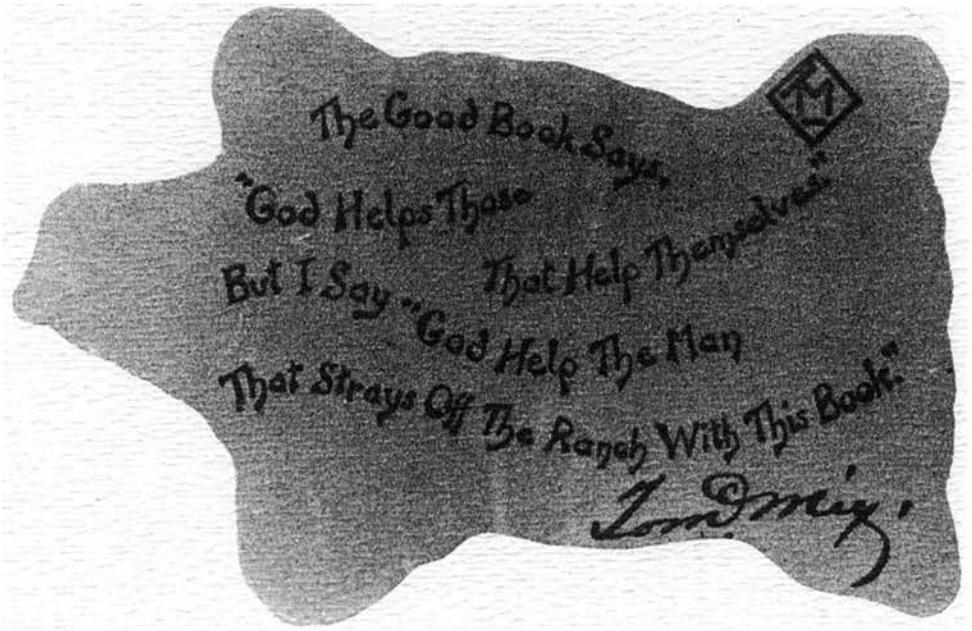 TM
The Good Book Says,
"God Helps Those
That Help Themselves."
But I Say "God Help The Man
That Strays Off The Ranch With This Book."
Tom Mix.